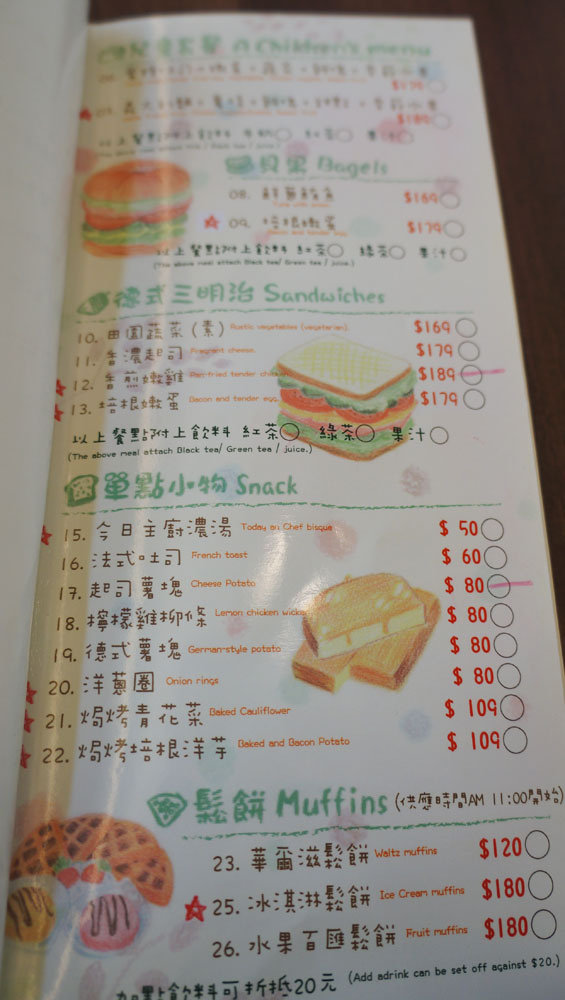 兒童套餐 Children's menu
$179
$189
以上餐點附上飲料 牛奶 紅茶 果汁
貝果 Bagels
08. 鮮蔥鮪魚 $169
★ 09. 培根嫩蛋 $179
Bacon and tender egg
以上餐點附上飲料 紅茶 綠茶 果汁
(The above meal attach Black tea/ Green tea / juice.)
德式三明治 Sandwiches
10. 田園蔬菜(素) Rustic vegetables (vegetarian). $169
11. 香濃起司 Fragrant cheese. $179
★ 12. 香煎嫩雞 Pan fried tender $189
★ 13. 培根嫩蛋 Bacon and tender egg. $179
以上餐點附上飲料 紅茶 綠茶 果汁
(The above meal attach Black tea/ Green tea / juice.)
單點小物 Snack
★ 15. 今日主廚濃湯 Today en Chef bisque $ 50
16. 法式吐司 French toast $ 60
17. 起司薯塊 Cheese Potato $ 80
18. 檸檬雞柳條 Lemon chicken $ 80
19. 德式薯塊 German-style potato $ 80
★ 20. 洋蔥圈 Onion rings $ 80
★ 21. 焗烤青花菜 Baked Cauliflower $ 109
★ 22. 焗烤培根洋芋 Baked and Bacon Potato $ 109
鬆餅 Muffins (供應時間AM 11:00開始)
23. 華爾滋鬆餅 Waltz muffins $120
★ 25. 冰淇淋鬆餅 Ice Cream muffins $180
26. 水果百匯鬆餅 Fruit muffins $180
加點飲料可折抵20元 (Add adrink can be set off against $20.)